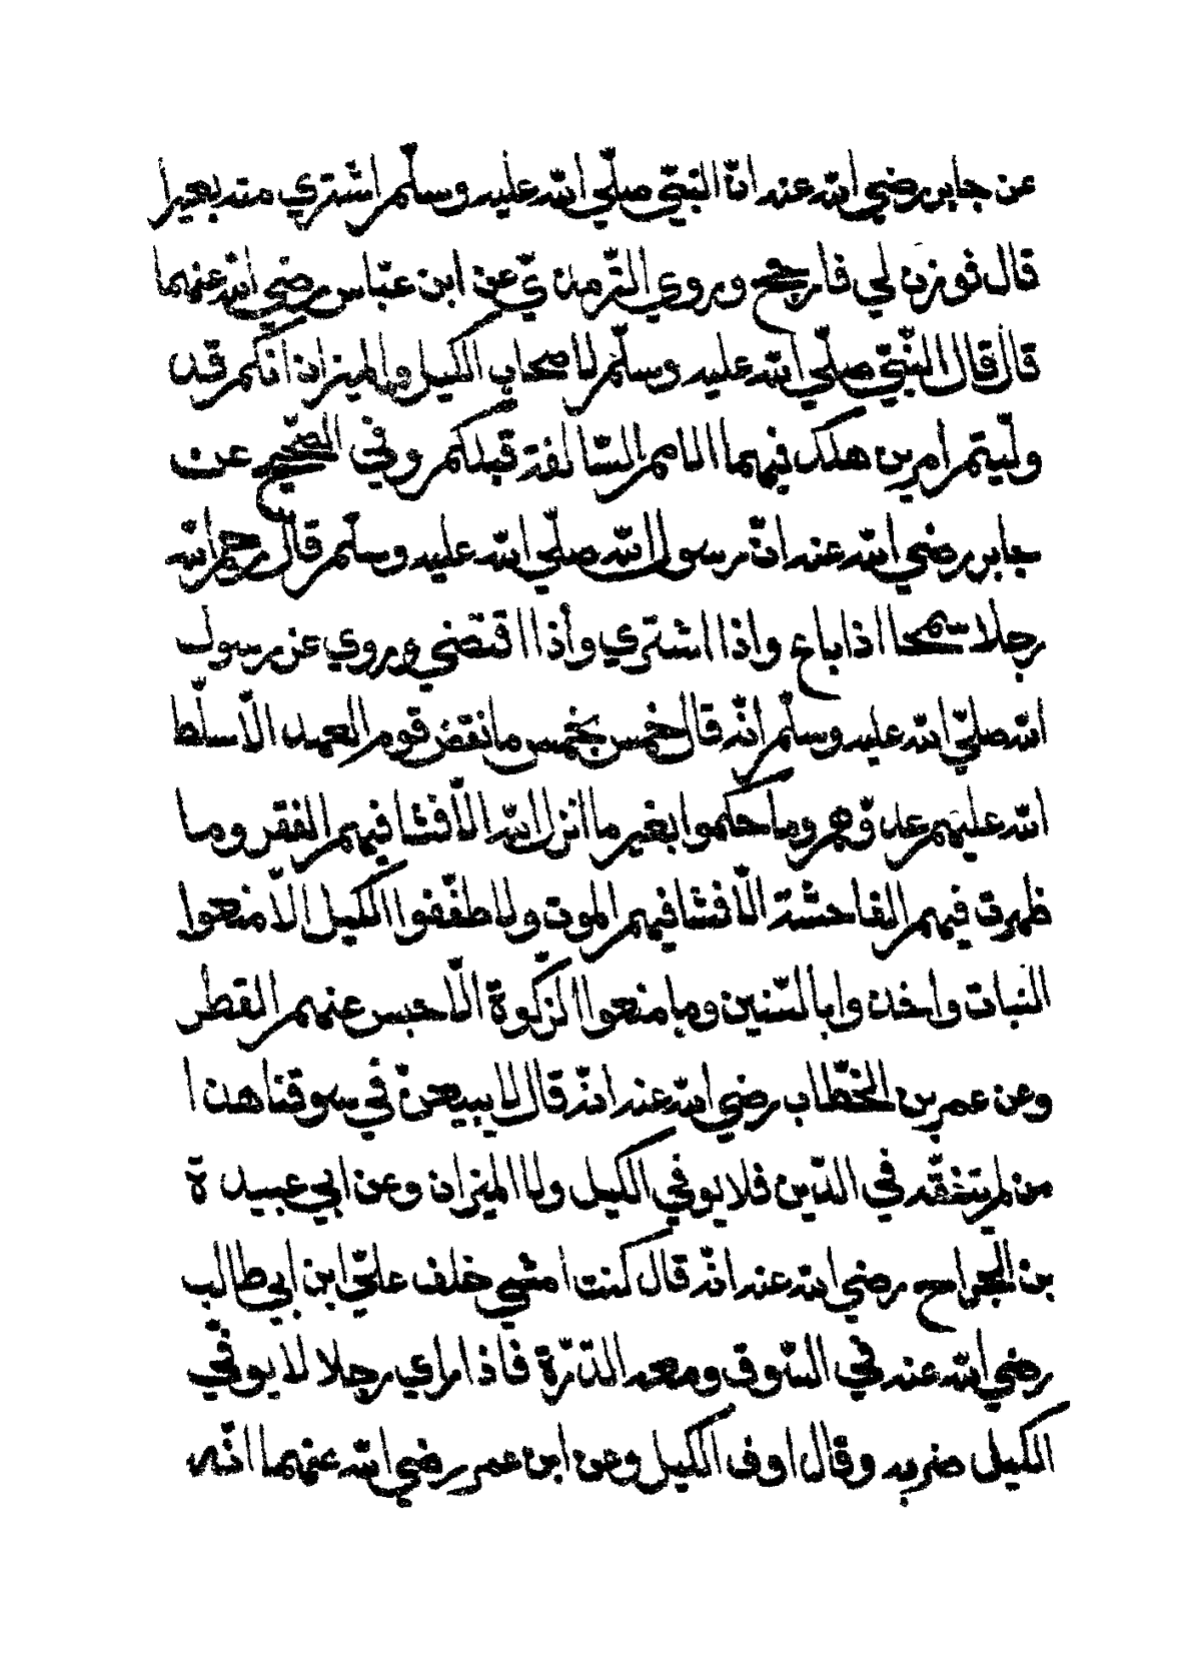 عن جابر رضي الله عنه انّ النبيّ صلّي الله عليه وسلّم اشتري منه بعيرا
قال فوزن لي فارجح وروي التّرمذيّ عن ابن عبّاس رضي الله عنهما
قال قال النّبيّ صلّي الله عليه وسلّم لاصحاب الكيل والميزان انّكم قد
ولّيتم امرين هلك فيهما الامم السّالفة قبلكم وفي الصّحيح عن
جابر رضي الله عنه انّ رسول الله صلّي الله عليه وسلّم قال رحم الله
رجلا سمحا اذا باع واذا اشتري وأذا اقتضي وروي عن رسول
الله صلّي الله عليه وسلّم انّه قال خمس بخمس ما نقض قوم العهد الّا سلّط
الله عليهم عدوّهم وما حكموا بغير ما انزل الله الّا فشا فيهم الفقر وما
ظهرت فيهم الفاحشة الّا فشا فيهم الموت ولا طفّفوا الكيل الّا منعوا
النبات واخذوا بالسّنين وما منعوا الزكوة الّا حبس عنهم القطر
وعن عمر بن الخطّاب رضي الله عنه انّه قال لا يبيعنّ في سوقنا هذا
من لم يتفقّه في الدّين فلا يوفي الكيل ولا الميزان وعن ابي عبيدة
بن الجراح رضي الله عنه انّه قال كنت امشي خلف عليّ ابن ابي طالب
رضي الله عنه في السّوق ومعه الدّرّة فاذا راي رجلا لا يوفّي
الكيل ضربه وقال اوف الكيل وعن ابن عمر رضي الله عنهما انّه